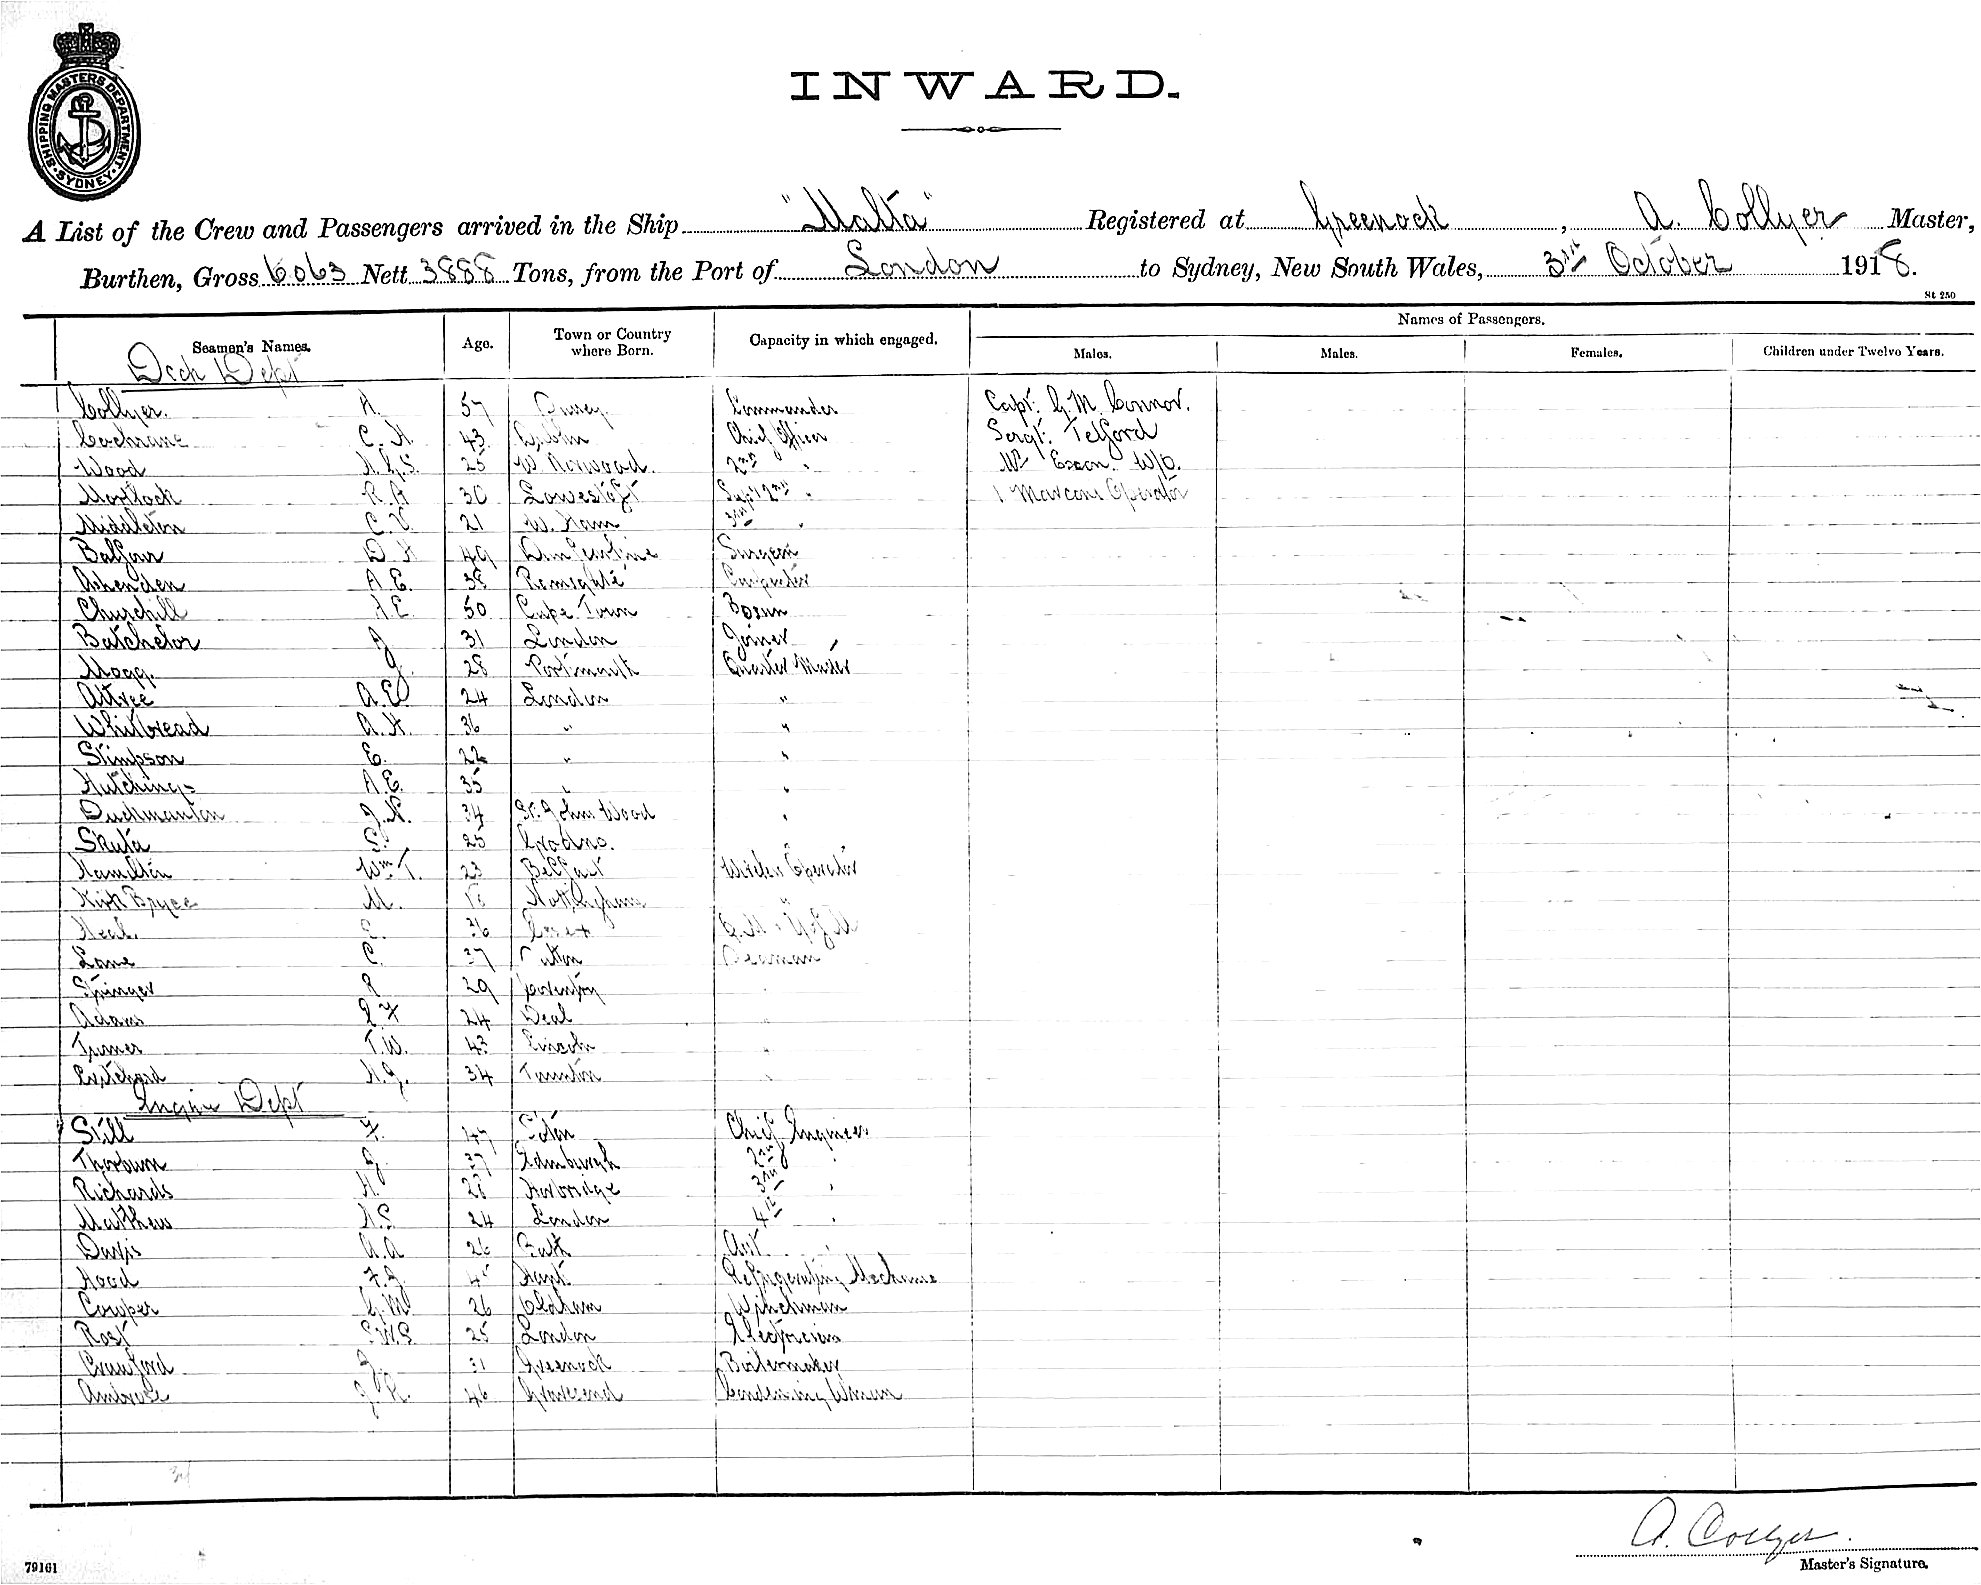 SHIPPING MASTERS DEPARTMENT
SYDNEY
INWARD.
A List of the Crew and Passengers arrived in the Ship "Malta" Registered at Greenock, A. Collyer Master,
Burthen, Gross 6063 Nett 3888 Tons, from the Port of London to Sydney, New South Wales, 3rd October 1918.
St 250
Seamen's Names. Age. Town or Country where Born. Capacity in which engaged. Names of Passengers.
Males. Males. Females. Children under Twelve Years.
Deck Dept
Collyer. A. 57 Surrey. Commander Capt. G. M. Connor.
Cochrane C. H. 43 Dublin Chief Officer Sergt. Telford
Wood 25 W. Norwood. 2nd " Mr W/O.
Morlock R. A 30 Lowestoft Sup 2nd " 1 Marconi Operator
Middleton C. V. 21 W. Ham 3rd "
Balfour D. H 49 Dunfermline Surgeon
Ashenden A. E. 38 Ramsgate Carpenter
Churchill A. E. 50 Cape Town Bosun
Batchelor J 31 London Joiner
Mogg. J. 28 Portsmouth Quarter Master
Attree A. E 24 London "
Whitbread A. H. 36 " "
Stimpson E. 22 " "
Hutchings A. E. 35 " "
Duckmanton J. N. 34 St. Johns Wood "
Skuta S. 25 Grodno. "
Hamilton Wm T. 23 Belfast Wireless Operator
Kirk Bryce M. 18 Nottingham "
Neal. 36 Essex
Lane C. 37 Sutton Seaman
Stringer R 29 Coventry "
Adams 24 Deal "
Turner T. W. 43 Lincoln "
Pritchard H. J. 34 Taunton "
Engine Dept
Still F. 47 Chief Engineer
Thorburn J. 37 Edinburgh 2nd "
Richards H. 28 3rd "
Matthew A. S. 24 London 4th "
Davis A. A 26 Bath Asst. "
Hood F. J. 45 Hants Refrigerating Mechanic
Cowper G. M. 26 Oldham Winchman
Rost S. W. S 25 London Electrician
Crawford J. 31 Greenock Boilermaker
Ambrose J. R. 46 Gravesend Condensing Winman
34
A. Collyer.
Master's Signature.
79161